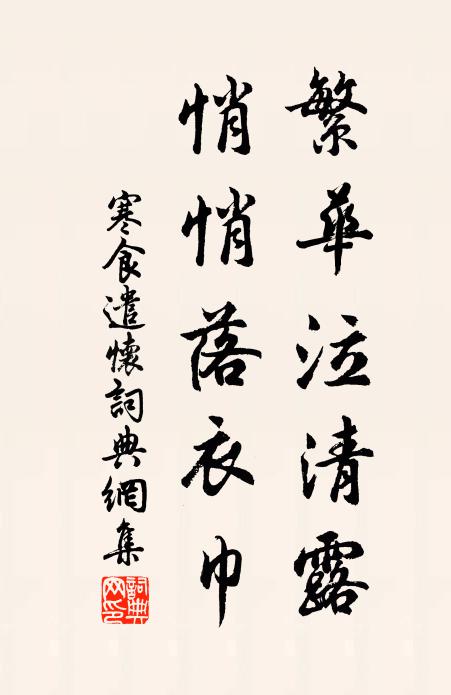 繁華泣清露
悄悄落衣巾
寒食遣懷詞典網集
詞典網印